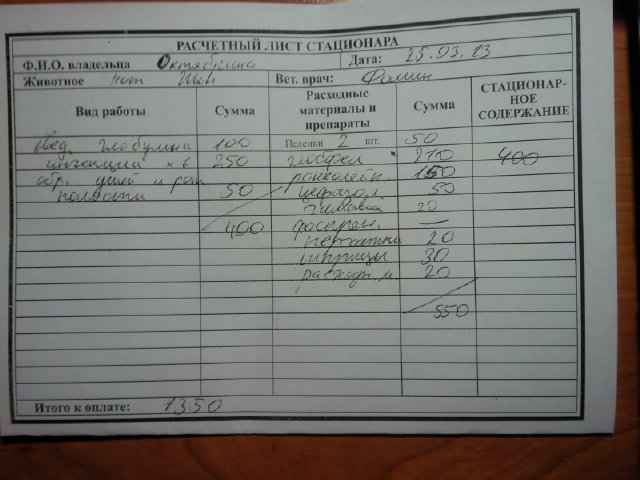 РАСЧЕТНЫЙ ЛИСТ СТАЦИОНАРА
Ф.И.О. владельца Октябрина Дата: 25.03.13
Животное кот Вет. врач: Фомин
Вид работы Сумма Расходные материалы и препараты Сумма СТАЦИОНАРНОЕ СОДЕРЖАНИЕ
введ. глобулина 100 Пеленки 2 шт. 50
инъекций х 6 250 глобфел 210 400
обр. ушей и рот. ронколейк 150
полости 50 цефазол. 50
гамавит 20
400 фоспрен. —
перчатки 20
шприцы 30
расходн. м. 20
550
Итого к оплате: 1350